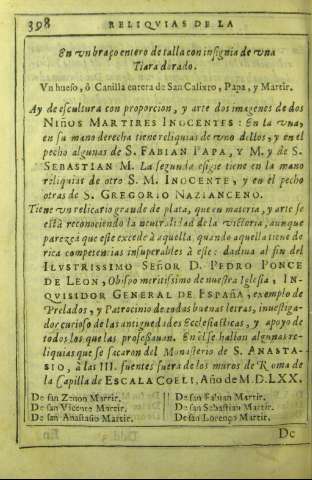 398 RELIQVIAS DE LA
En vn braço entero de talla con insignia de vna
Tiara dorado.
Vn hueso, ò Canilla entera de San Calixto, Papa, y Martir.
Ay de escultura con proporcion, y arte dos imagenes de dos
NIÑOS MARTIRES INOCENTES: En la vna,
en su mano derecha tiene reliquias de vno dellos, y en el
pecho algunas de S. FABIAN PAPA, Y M. y de S.
SEBASTIAN M. La segunda efigie tiene en la mano
reliquias de otro S. M. INOCENTE, y en el pecho
otras de S. GREGORIO NAZIANCENO.
Tiene vn relicario grande de plata, que en materia, y arte se
està reconociendo la neutralidad de la victoria, aunque
parezca que este excede à aquella, quando aquella tiene de
rica competencias insuperables à este: dadiua al fin del
ILVSTRISSIMO SEÑOR D. PEDRO PONCE
DE LEON, Obispo meritissimo de nuestra Iglesia, IN-
QVISIDOR GENERAL DE ESPAÑA, exemplo de
Prelados, y Patrocinio de todas buenas letras, inuestiga-
dor curioso de las antiguedades Ecclesiasticas, y apoyo de
todos los que las professauan. En el se hallan algunas re-
liquias que se sacaron del Monasterio de S. ANASTA-
SIO, à las III. fuentes fuera de los muros de Roma de
la Capilla de ESCALA COELI, Año de M.D.LXX.
De san Zenon Martir. De san Fabian Martir.
De san Vicente Martir. De san Sebastian Martir.
De san Anastasio Martir. De san Lorenço Martir.
De